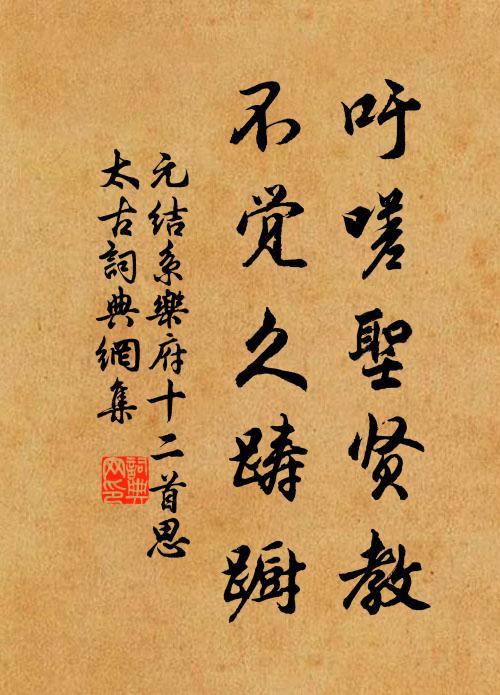 吁嗟聖贤教
不觉久踌蹰
元结系樂府十二首思
太古詞典網集
詞典